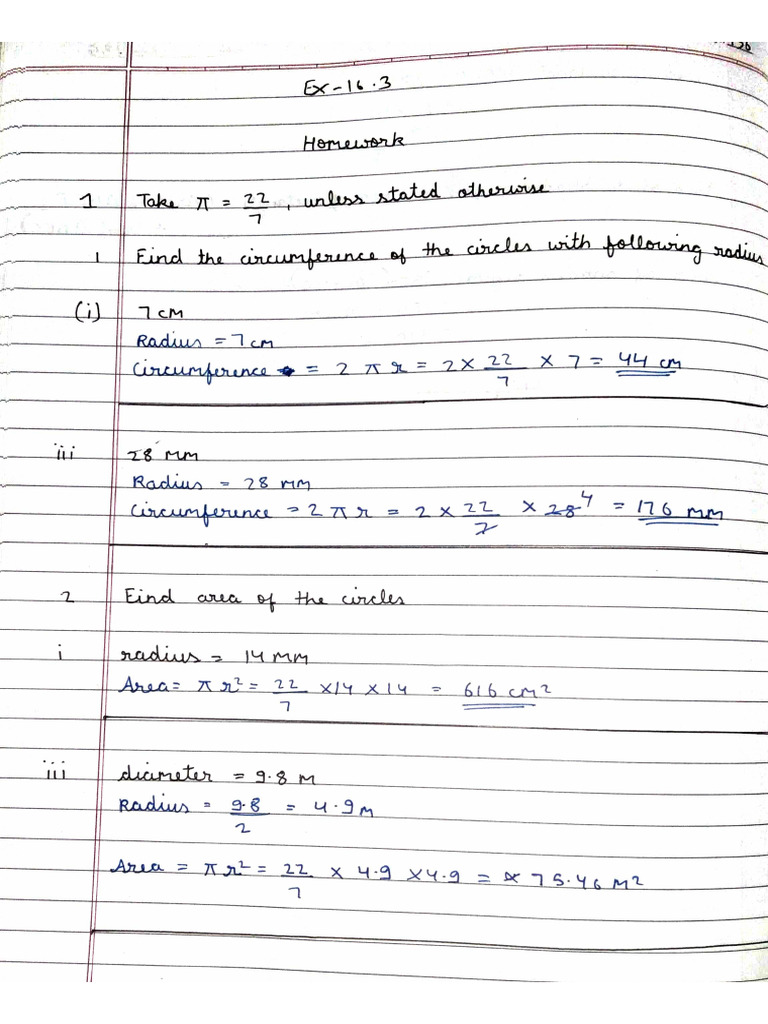 Ex-16.3
Homework
1 Take π = 22/7, unless stated otherwise
1 Find the circumference of the circles with following radius
(i) 7 cm
Radius = 7 cm
Circumference = 2 π r = 2 × 22/7 × 7 = 44 cm
iii 28 mm
Radius = 28 mm
Circumference = 2 π r = 2 × 22/7 × 28 4 = 176 mm
2 Find area of the circles
i radius = 14 mm
Area = π r² = 22/7 × 14 × 14 = 616 cm²
iii diameter = 9.8 m
Radius = 9.8/2 = 4.9 m
Area = π r² = 22/7 × 4.9 × 4.9 = 75.46 m²